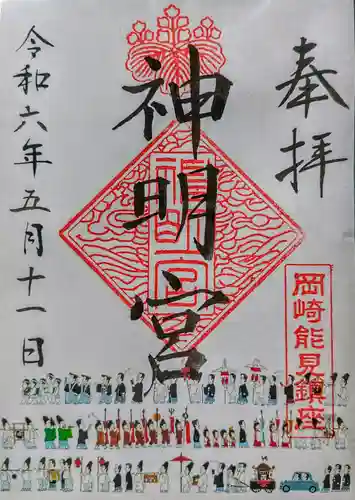 奉拝
神明宮
神明宮
岡崎能見鎮座
令和六年五月十一日